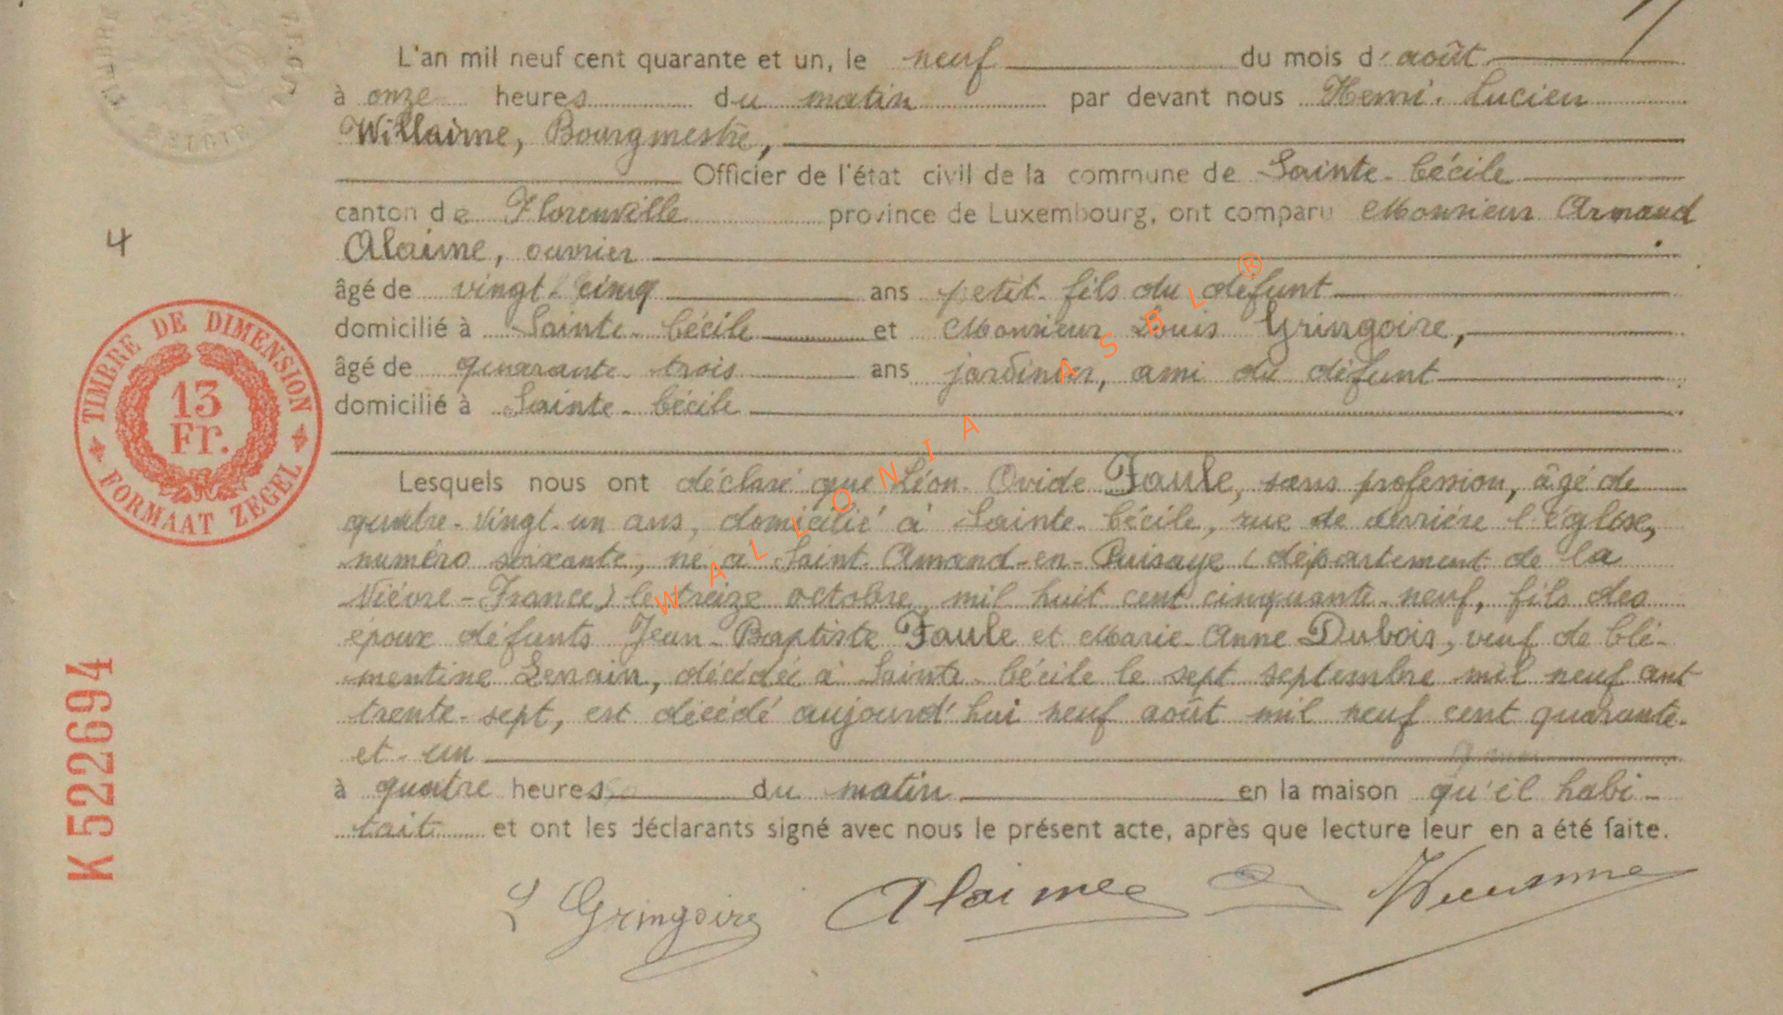 L'an mil neuf cent quarante et un, le neuf du mois d'août
à onze heures du matin par devant nous Henri-Lucien
Willaime, Bourgmestre,
Officier de l'état civil de la commune de Sainte-Cécile
canton de Florenville province de Luxembourg, ont comparu Monsieur Armand
Alaime, ouvrier
4
âgé de vingt-cinq ans petit-fils du défunt
domicilié à Sainte-Cécile et Monsieur Louis Gringoire,
âgé de quarante-trois ans jardinier, ami du défunt
domicilié à Sainte-Cécile
TIMBRE DE DIMENSION
13
Fr.
FORMAAT ZEGEL
Lesquels nous ont déclaré que Léon-Ovide Faule, sans profession, âgé de
quatre-vingt-un ans, domicilié à Sainte-Cécile, rue de derrière l'église,
numéro soixante, né à Saint-Amand-en-Puisaye (département de la
Nièvre-France) le treize octobre mil huit cent cinquante-neuf, fils des
époux défunts Jean-Baptiste Faule et Marie-Anne Dubois, veuf de Clé-
mentine Lenain, décédée à Sainte-Cécile le sept septembre mil neuf cent
trente-sept, est décédé aujourd'hui neuf août mil neuf cent quarante-
et-un
à quatre heures du matin en la maison qu'il habi-
tait et ont les déclarants signé avec nous le présent acte, après que lecture leur en a été faite.
K 522694
L Gringoire Alaime Willaime
WALLONIA ASBL ®
BELGIE